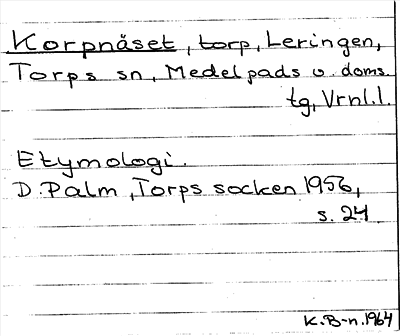 Korpnäset, torp, Leringen,
Torps sn, Medelpads v. doms.
tg, Vrnl.l.
Etymologi.
D. Palm, Torps socken 1956,
s. 24
K.B-n. 1964